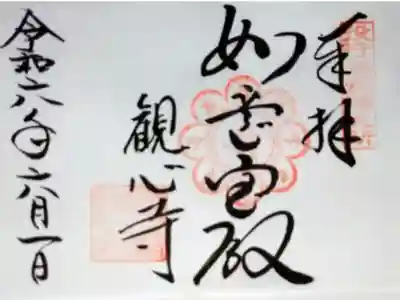 奉拝
如意宝殿
観心寺
令和六年六月一日